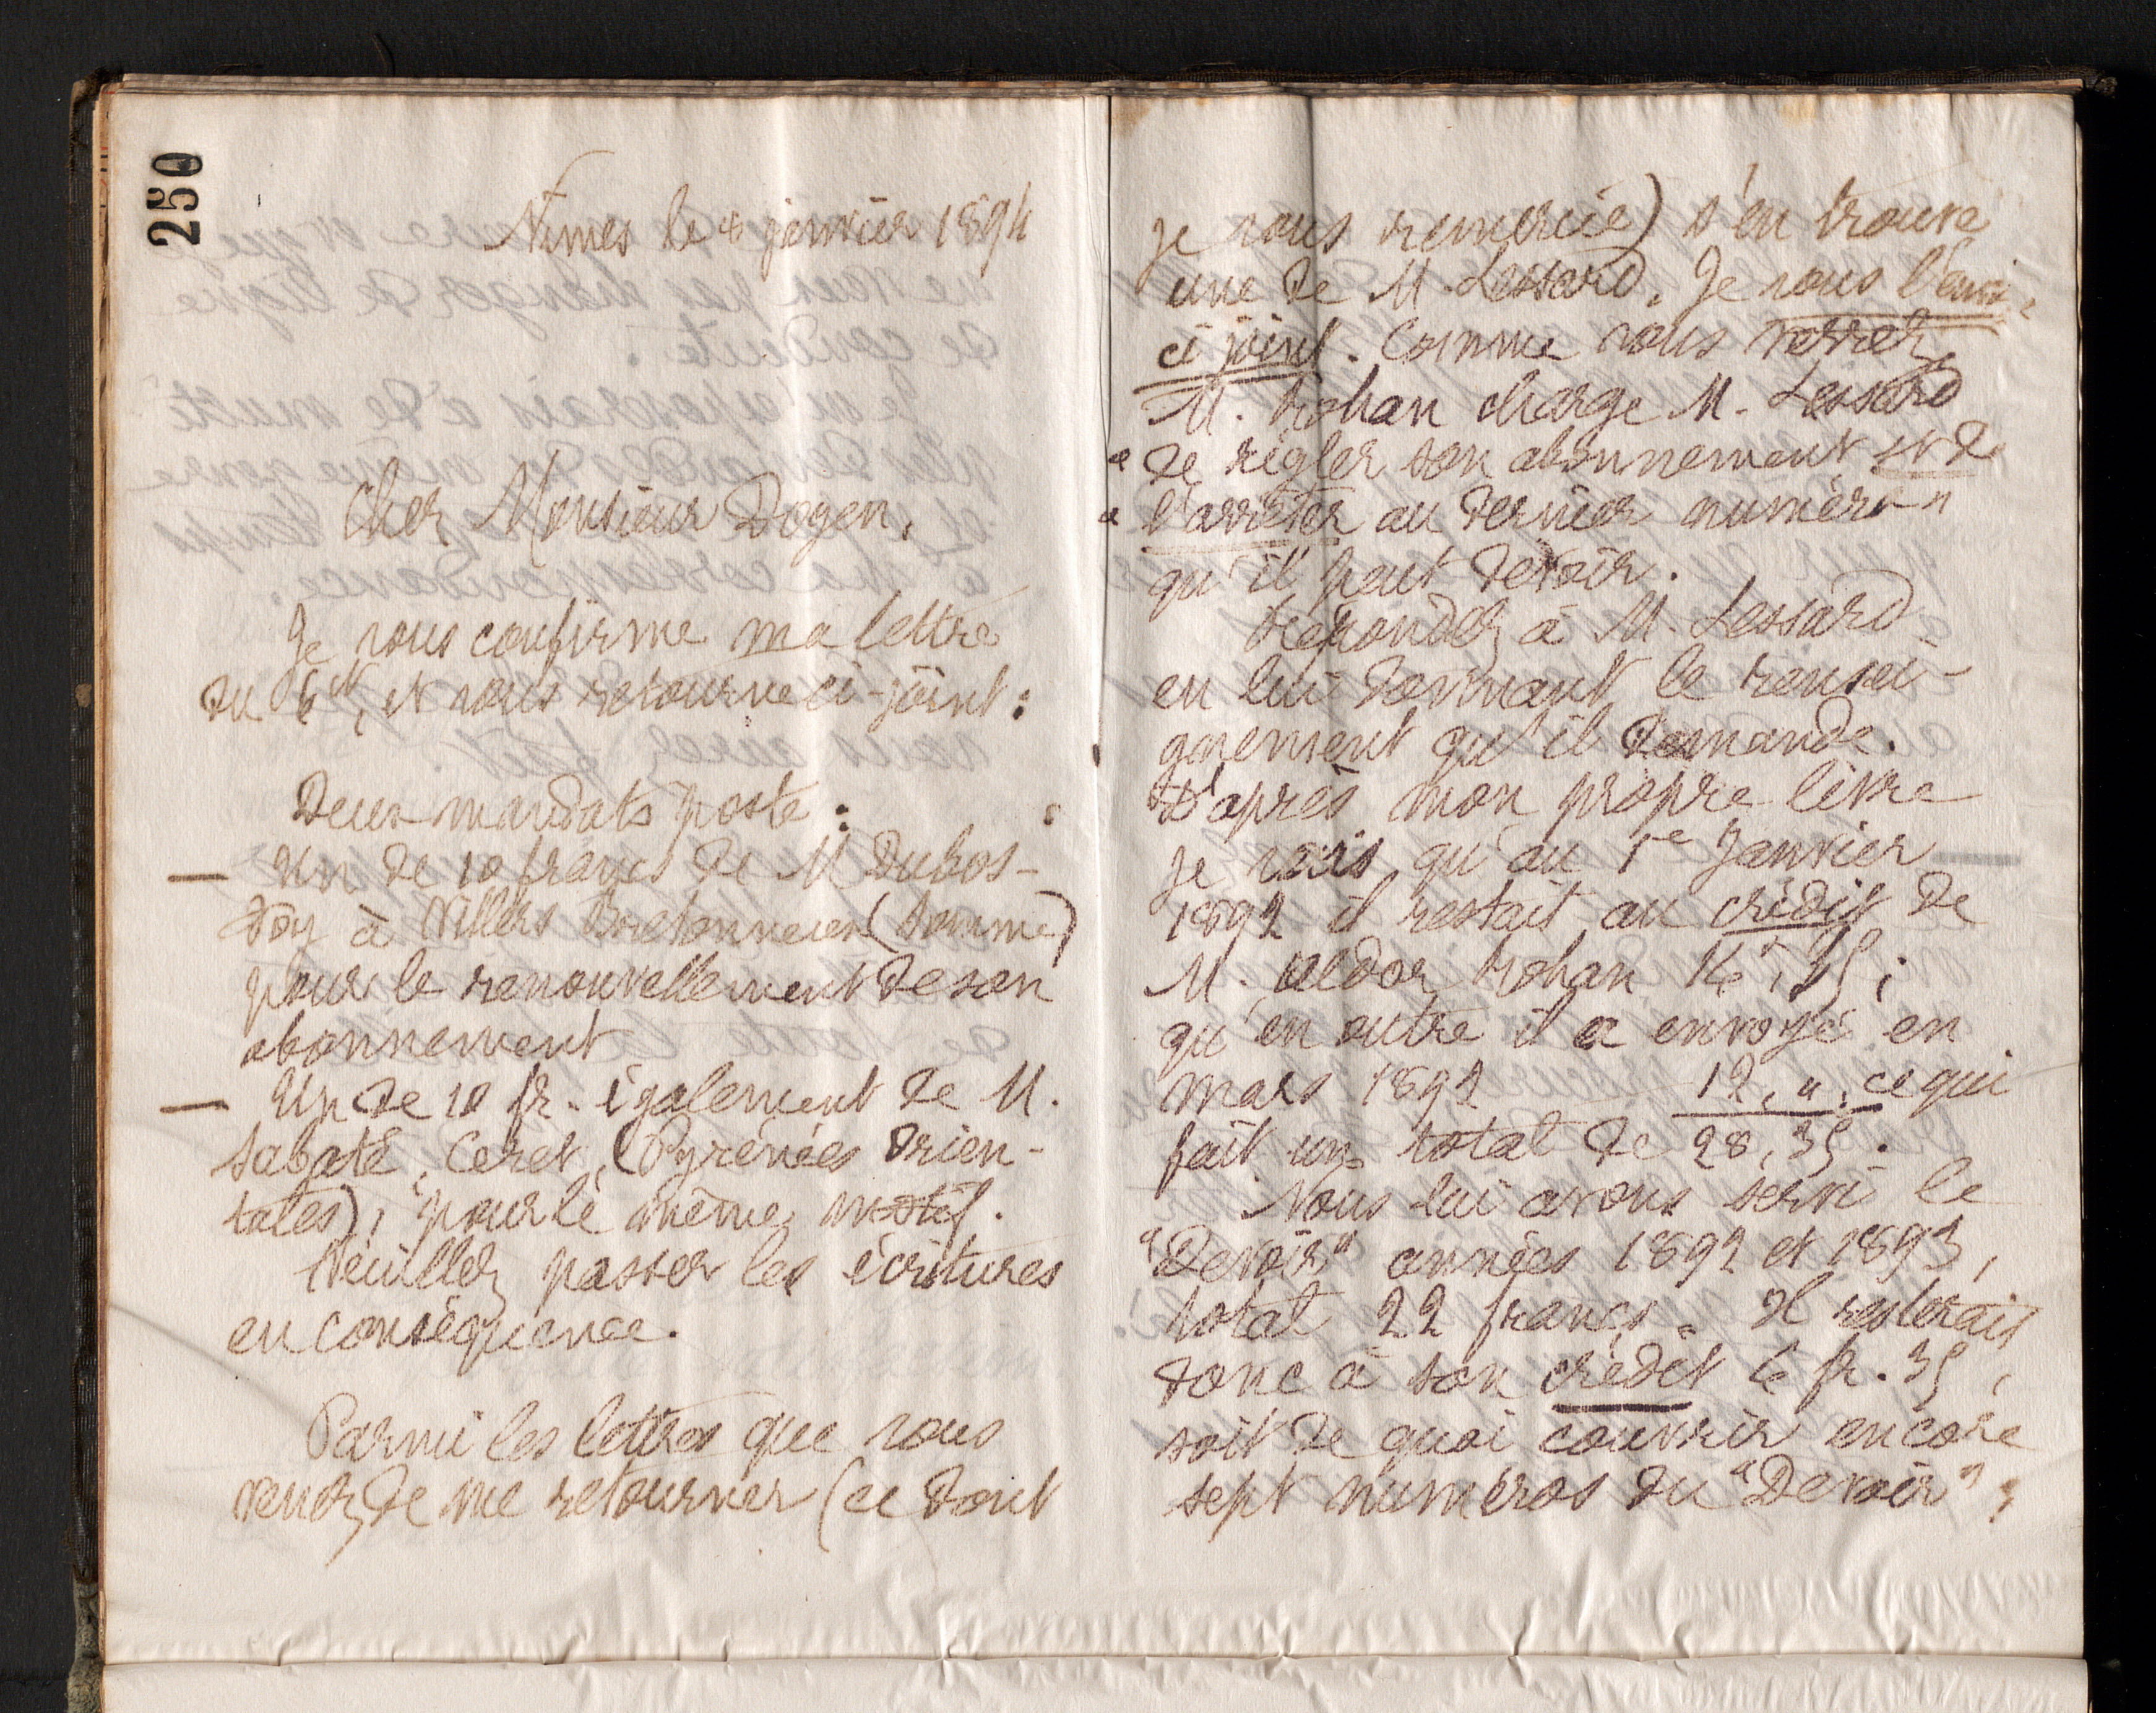 250
Nimes le 8 janvier 1894
Cher Monsieur Doyen,
Je vous confirme ma lettre
du 6 et, et vous retourne ci-joint :
Deux mandats poste :
— Un de 10 francs de M Dubos-
à Villers Bretonneux (Somme)
pour le renouvellement de son
abonnement
— Un de 10 fr. également de M.
Sabaté, Céret, (Pyrénées Orien-
tales), pour le même motif.
Veuillez passer les écritures
en conséquence.
Parmi les lettres que vous
venez de me retourner (ce dont
je vous remercie) s'en trouve
une de M. Lessard. Je vous l'envoie
ci joint. Comme vous verrez,
M. Rohan charge M. Lessard
" de régler son abonnement et de
" l'arrêter au dernier numéro "
qu'il peut devoir.
Répondez à M. Lessard
en lui donnant le rensei-
gnement qu'il demande.
D'après mon propre livre
je vois qu'au 1e Janvier
1892 il restait au crédit de
M. Aldor Rohan 16, 35 ;
qu'en outre il a envoyé en
mars 1892 12, ". ce qui
fait un total de 28, 35.
Nous lui avons servi le
"Devoir" années 1892 et 1893,
total 22 francs. Il resterait
donc à son crédit 6 fr. 35,
soit de quoi couvrir encore
sept numéros du "Devoir" ;